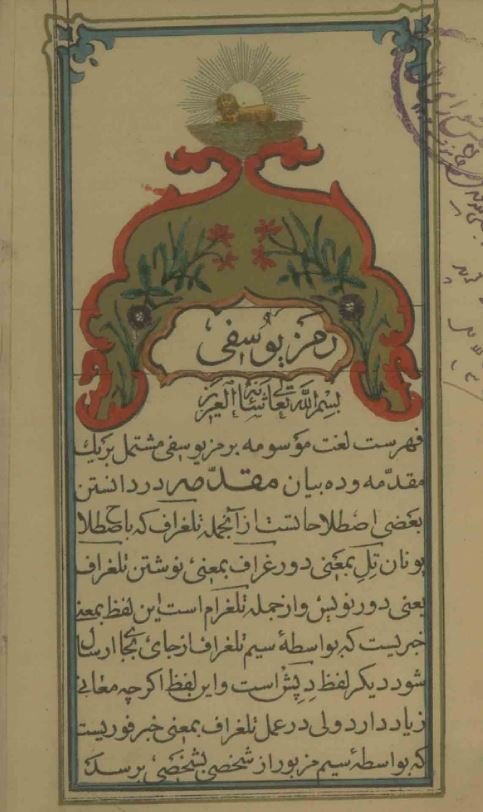 رمز یوسفی
بسم الله تعالی شانه العزیز
فهرست لغت مؤسومه برمز یوسفی مشتمل بر یک
مقدّمه و ده بیان مقدّمه در دانستن
بعضی اصطلاحاتست از آنجمله تلغراف که باصطلا
یونان تِل بمعنی دور غراف بمعنی نوشتن تلغراف
یعنی دور نویس و از جمله تلغرام است این لفظ بمعنی
خبریست که بواسطهٔ سیم تلغراف از جائی بجا ارسال
شود دیگر لفظ دپش است و این لفظ اگرچه معانی
زیاد دارد ولی در عمل تلغراف بمعنی خبر فوریست
که بواسطهٔ سیم مزبور از شخصی بشخصی برسد